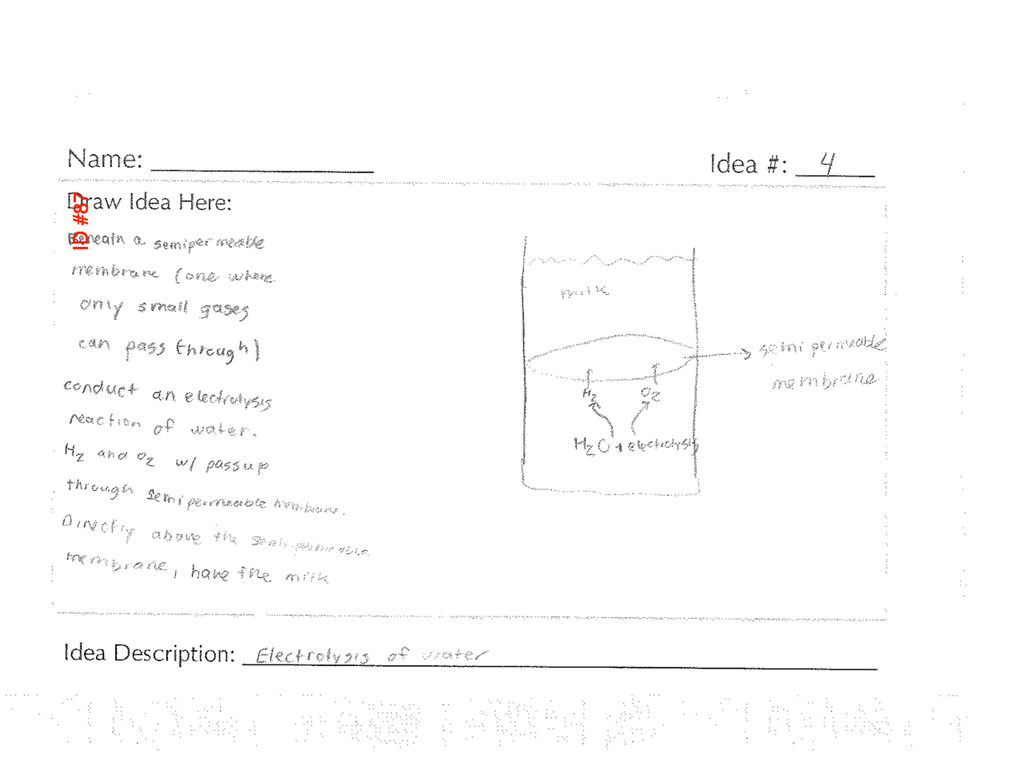 Name:
Idea #: 4
Draw Idea Here:
ID #87
Beneath a semipermeable
membrane (one where
only small gases
can pass through)
conduct an electrolysis
reaction of water.
H2 and O2 w/ pass up
through semipermeable membrane.
Directly above the semipermeable
membrane, have the milk
milk
semipermeable
membrane
H2 O2
H2O + electrolysis
Idea Description: Electrolysis of water